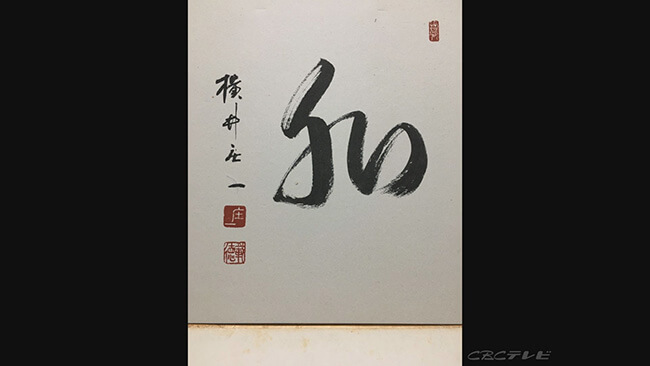 和
横井庄一
庄一
CBCテレビ